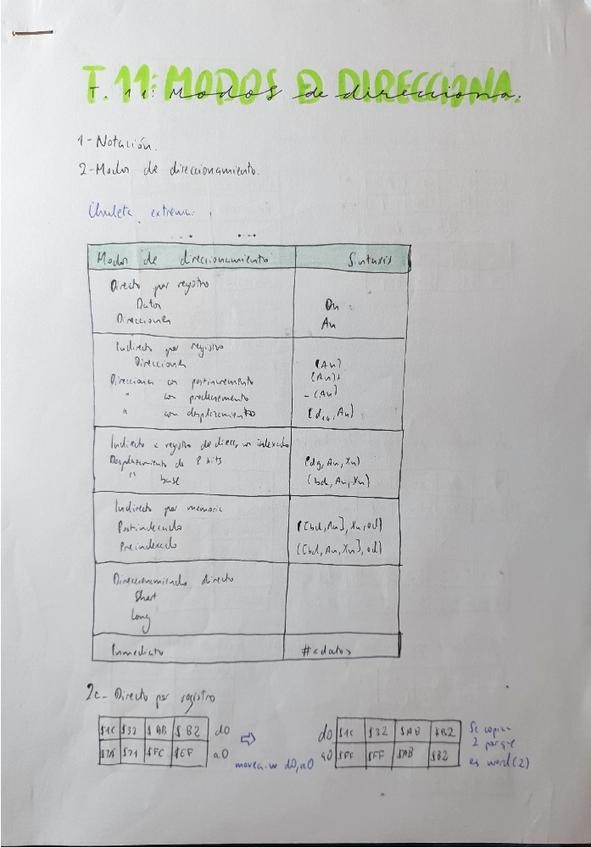 T.11: MODOS D DIRECCIONA.
T. 11: Modos de direcciona.
1-Notación.
2-Modos de direccionamiento.
Chuleta extrema:
Modos de direccionamiento Sintaxis
Directo por registro
Datos Dn
Direcciones An
Indirecto por registro
Direcciones (An)
Direcciones con postincremento (An)+
" con predecremento -(An)
" con desplazamiento (d16, An)
Indirecto a registro de direc, con indexado
Desplazamiento de 8 bits (d8, An, Xn)
" base (bd, An, Xn)
Indirecto por memoria
Postindexado ([bd, An], Xn, od)
Preindexado ([bd, An, Xn], od)
Direccionamiento directo
Short
Long
Inmediato #<datos>
2c- Directo por registro
$1C $32 $AB $B2 d0
$71 $FC $EF a0
movea.w d0, a0
d0 $1C $32 $AB $B2
a0 $FF $FF $AB $B2
Se copian
2 porque
es word(2)